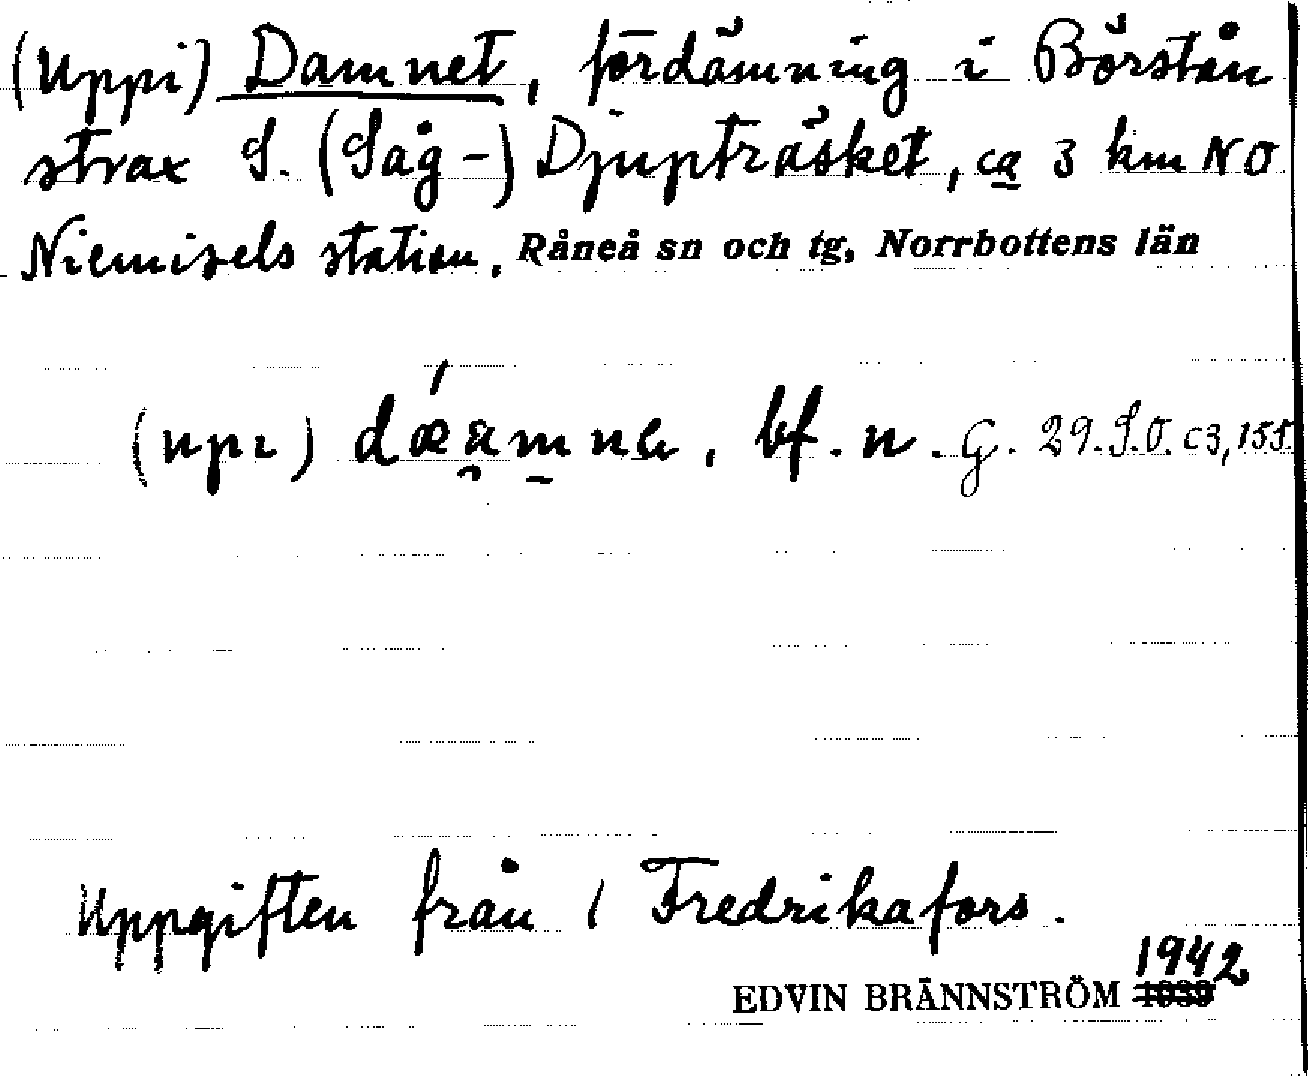 (Uppi) Damnet, fördämning i Börstån
strax S. (Såg-) Djupträsket, ca 3 km NO
Niemisels station, Råneå sn och tg, Norrbottens län
(upɩ) dǽa̯m̲na, bf. n. G. 29. S.O. c3,155.
Uppgiften från 1 Fredrikafors.
1942
EDVIN BRÄNNSTRÖM 1939